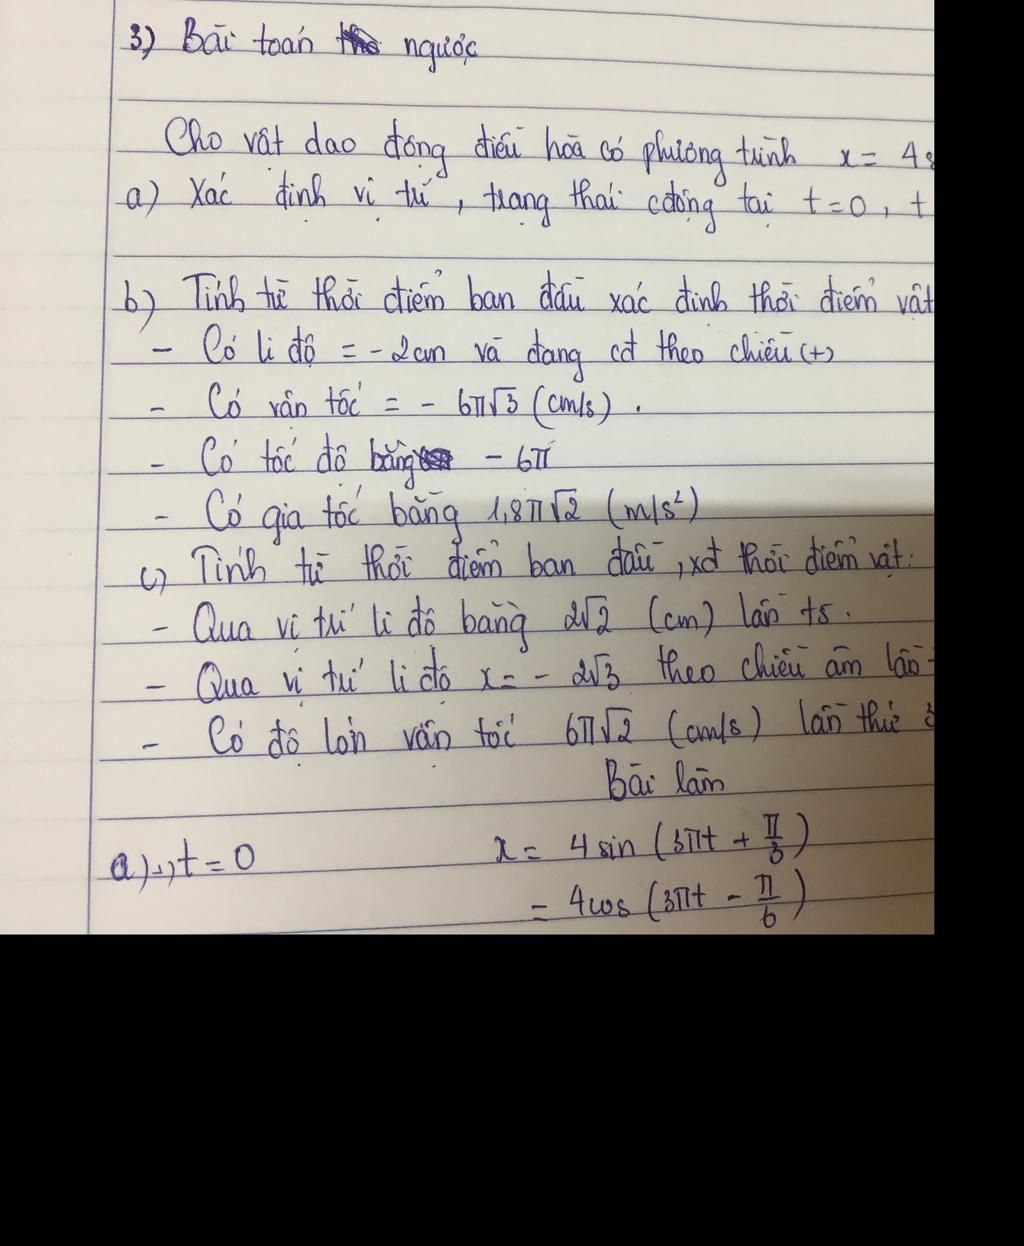 3) Bài toán ngược
Cho vật dao động điều hoà có phương trình x = 4
a) Xác định vị trí, trạng thái cđộng tại t=0, t
b) Tính từ thời điểm ban đầu xác định thời điểm vật
- Có li độ = -2cm và đang cđ theo chiều (+)
- Có vận tốc = - 6π√3 (cm/s).
- Có tốc độ bằng - 6π
- Có gia tốc bằng 1,8π√2 (m/s²)
c) Tính từ thời điểm ban đầu, xđ thời điểm vật:
- Qua vị trí li độ bằng 2√2 (cm) lần t5.
- Qua vị trí li độ x = - 2√3 theo chiều âm lần
- Có độ lớn vận tốc 6π√2 (cm/s) lần thứ 3
Bài làm
a) t = 0 x = 4 sin (3πt + π/3)
= 4cos (3πt - π/6)